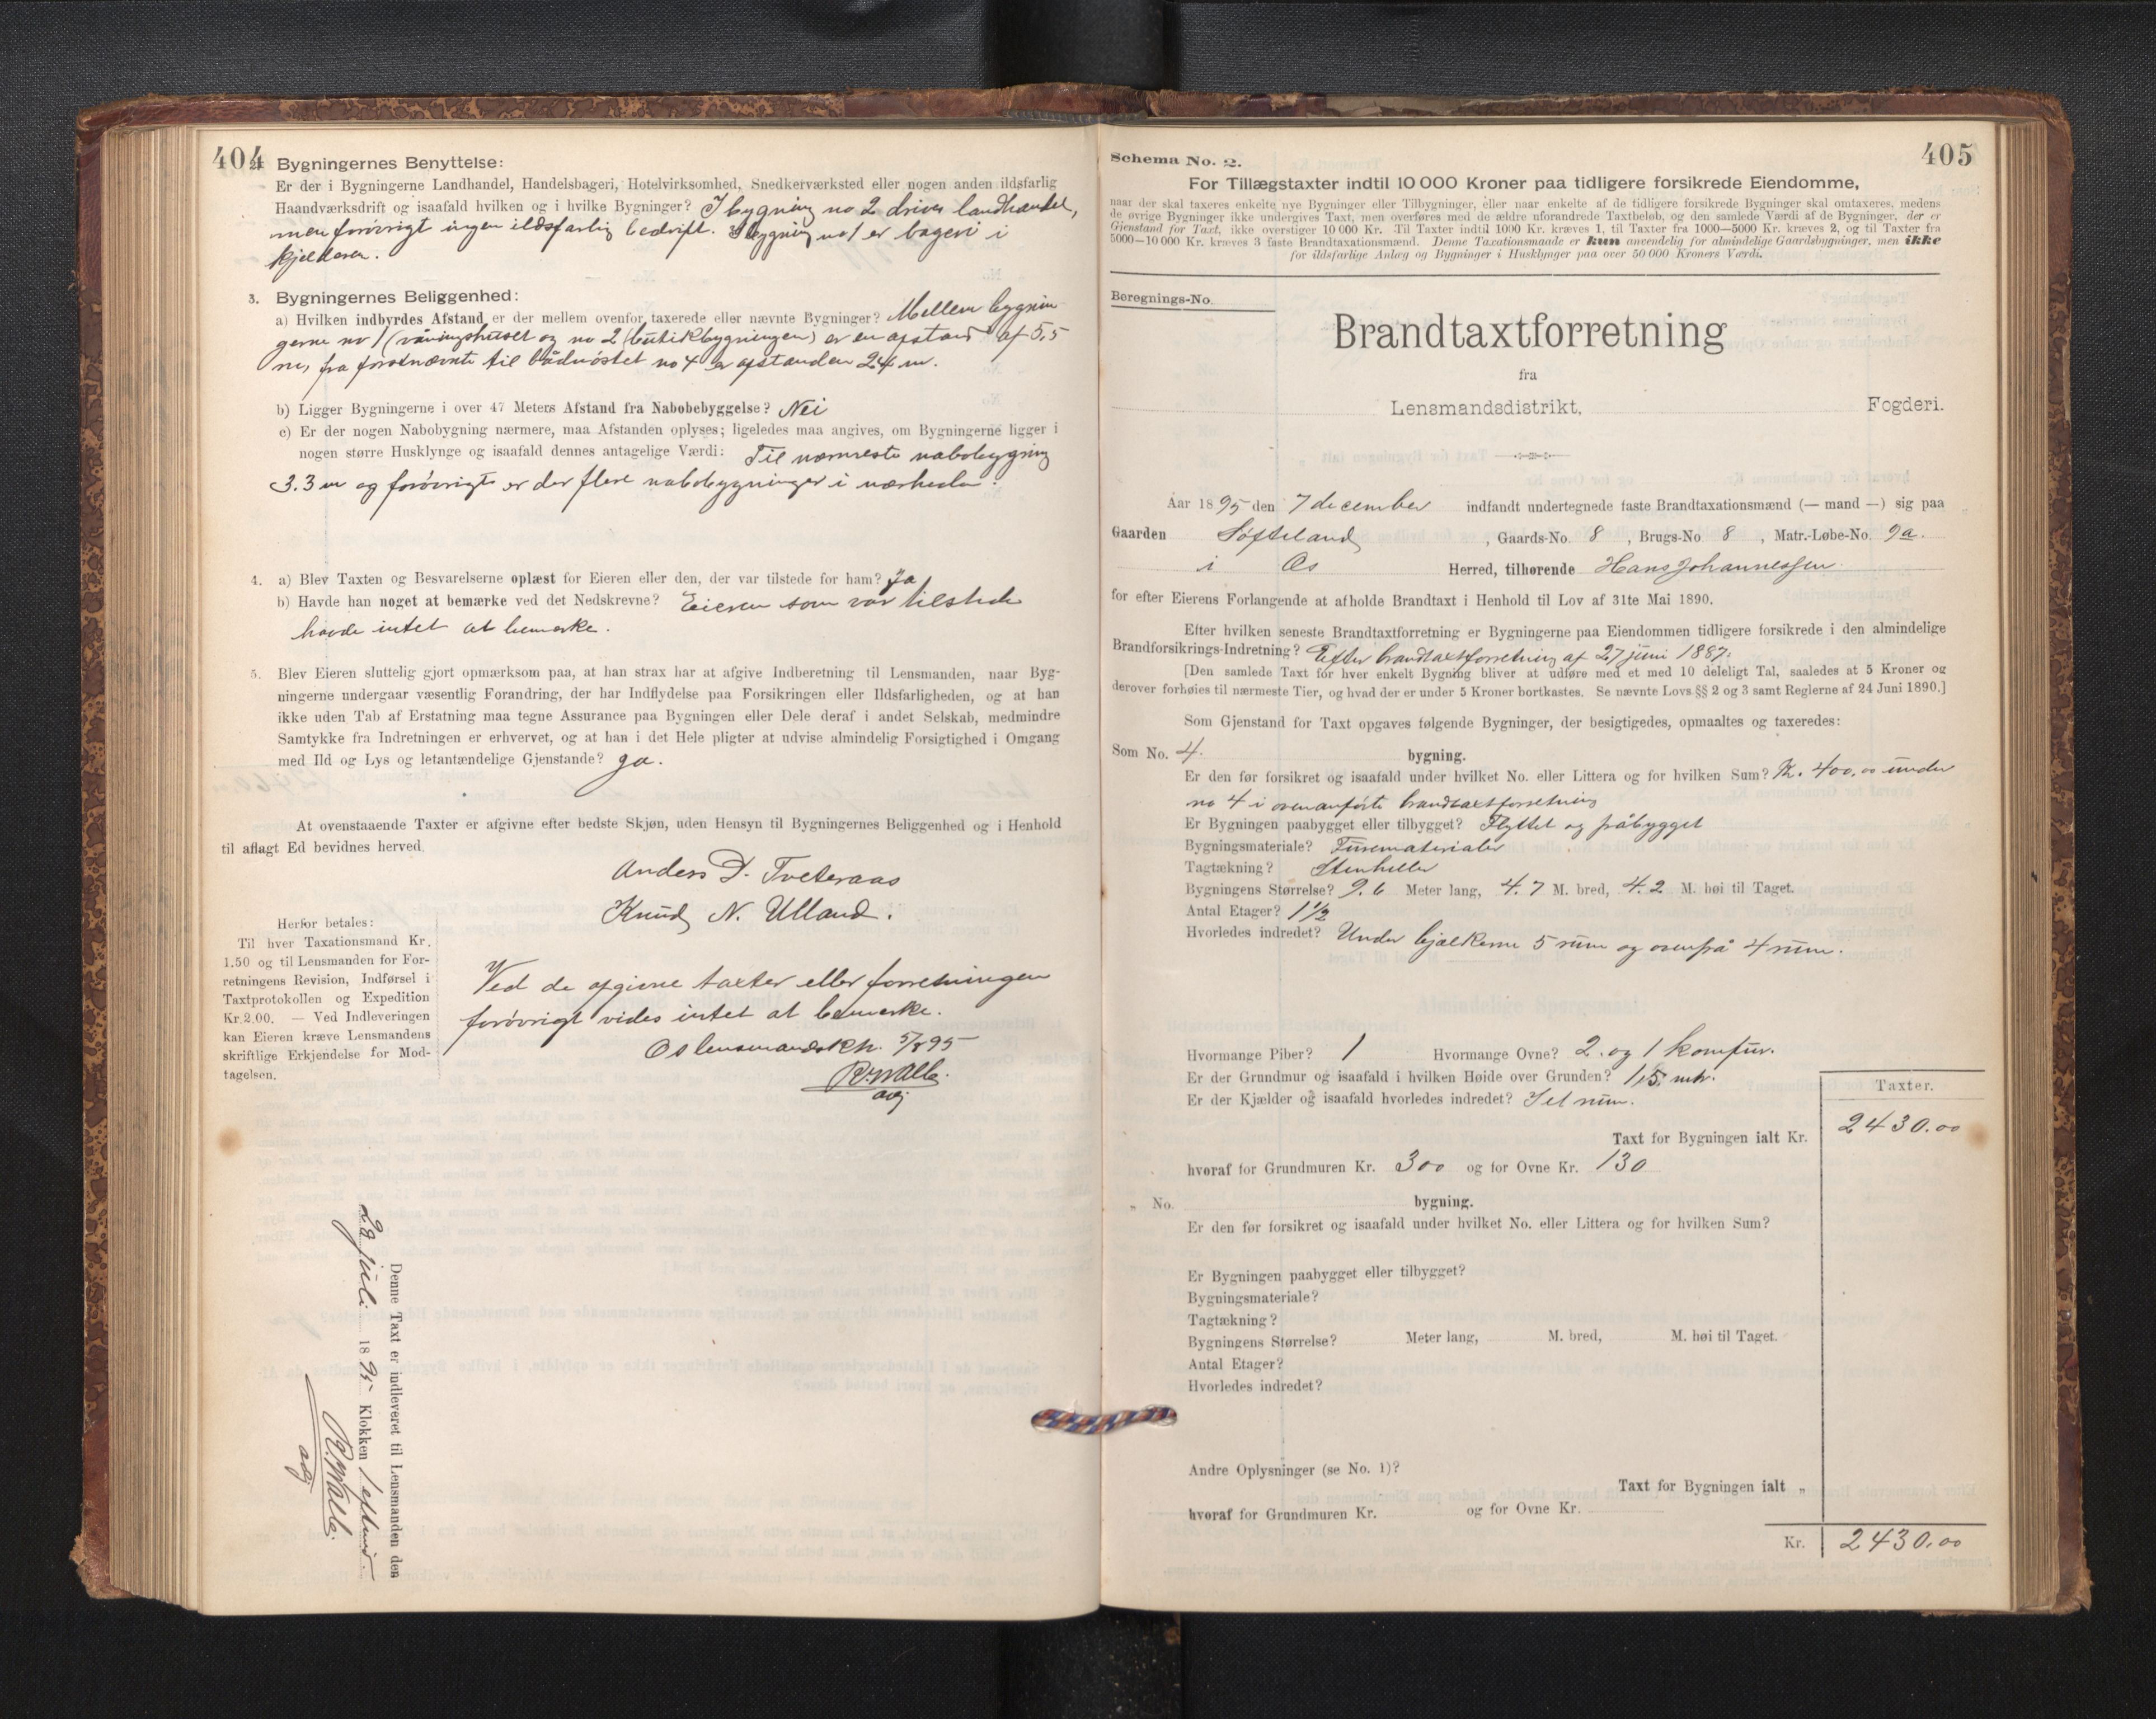 404
2. Bygningernes Benyttelse:
Er der i Bygningerne Landhandel, Handelsbageri, Hotelvirksomhed, Snedkerværksted eller nogen anden ildsfarlig
Haandværksdrift og isaafald hvilken og i hvilke Bygninger? I bygning no 2 drives landhandel,
men forøvrigt ingen ildsfarlig bedrift. I bygning no 1 er bageri i
kjelderen.
3. Bygningernes Beliggenhed:
a) Hvilken indbyrdes Afstand er der mellem ovenfor taxerede eller nævnte Bygninger? Mellem bygnin
gerne no 1 (våningshuset og no 2 (butikbygningen) er en afstand af 5,5
m, fra førstnævnte til bådnøstet no 4 er afstanden 24 m.
b) Ligger Bygningerne i over 47 Meters Afstand fra Nabobebyggelse? Nei
c) Er der nogen Nabobygning nærmere, maa Afstanden oplyses; ligeledes maa angives, om Bygningerne ligger i
nogen større Husklynge og isaafald dennes antagelige Værdi: Til nærmeste nabobygning
3.3 m og forøvrigt er der flere nabobygninger i nærheden.
4. a) Blev Taxten og Besvarelserne oplæst for Eieren eller den, der var tilstede for ham? Ja
b) Havde han noget at bemærke ved det Nedskrevne? Eieren som var tilstede
havde intet at bemerke.
5. Blev Eieren sluttelig gjort opmærksom paa, at han strax har at afgive Indberetning til Lensmanden, naar Byg-
ningerne undergaar væsentlig Forandring, der har Indflydelse paa Forsikringen eller Ildsfarligheden, og at han
ikke uden Tab af Erstatning maa tegne Assurance paa Bygningen eller Dele deraf i andet Selskab, medmindre
Samtykke fra Indretningen er erhvervet, og at han i det Hele pligter at udvise almindelig Forsigtighed i Omgang
med Ild og Lys og letantændelige Gjenstande? Ja.
At ovenstaaende Taxter er afgivne efter bedste Skjøn, uden Hensyn til Bygningernes Beliggenhed og i Henhold
til aflagt Ed bevidnes herved.
Anders D. Tveteraas
Knud N. Ulland.
Herfor betales:
Til hver Taxationsmand Kr.
1.50 og til Lensmanden for For-
retningens Revision, Indførsel i
Taxtprotokollen og Expedition
Kr. 2.00. — Ved Indleveringen
kan Eieren kræve Lensmandens
skriftlige Erkjendelse for Mod-
tagelsen.
Ved de afgivne taxter eller forretningen
forøvrigt vides intet at bemerke.
Os lensmandsktr. 5/8 95
adj
Denne Taxt er indleveret til Lensmanden den
29 juli 1895 Klokken 1 eftmid.
adj
405
Schema No. 2.
For Tillægstaxter indtil 10 000 Kroner paa tidligere forsikrede Eiendomme,
naar der skal taxeres enkelte nye Bygninger eller Tilbygninger, eller naar enkelte af de tidligere forsikrede Bygninger skal omtaxeres, medens
de øvrige Bygninger ikke undergives Taxt, men overføres med de ældre uforandrede Taxtbeløb, og den samlede Værdi af de Bygninger, der er
Gjenstand for Taxt, ikke overstiger 10 000 Kr. Til Taxter indtil 1000 Kr. kræves 1, til Taxter fra 1000—5000 Kr. kræves 2, og til Taxter fra
5000—10 000 Kr. kræves 3 faste Brandtaxationsmænd. Denne Taxationsmaade er kun anvendelig for almindelige Gaardsbygninger, men ikke
for ildsfarlige Anlæg og Bygninger i Husklynger paa over 50 000 Kroners Værdi.
Beregnings-No.
Brandtaxtforretning
fra
Lensmandsdistrikt, Fogderi.
Aar 1895 den 7 december indfandt undertegnede faste Brandtaxationsmænd (— mand —) sig paa
Gaarden Søfteland, Gaards-No. 8, Brugs-No 8, Matr.-Løbe-No. 9a.
i Os Herred, tilhørende Hans Johannessen
for efter Eierens Forlangende at afholde Brandtaxt i Henhold til Lov af 31te Mai 1890.
Efter hvilken seneste Brandtaxtforretning er Bygningerne paa Eiendommen tidligere forsikrede i den almindelige
Brandforsikrings-Indretning? Efter brandtaxtforretning af 27 juni 1887.
[Den samlede Taxt for hver enkelt Bygning bliver at udføre med et med 10 deleligt Tal, saaledes at 5 Kroner og
derover forhøies til nærmeste Tier, og hvad der er under 5 Kroner bortkastes. Se nævnte Lovs §§ 2 og 3 samt Reglerne af 24 Juni 1890.]
Som Gjenstand for Taxt opgaves følgende Bygninger, der besigtigedes, opmaaltes og taxeredes:
Som No. 4. bygning.
Er den før forsikret og isaafald under hvilket No. eller Littera og for hvilken Sum? Kr. 400,00 under
no 4 i ovenanførte brandtaxtforretning
Er Bygningen paabygget eller tilbygget? Flyttet og påbygget
Bygningsmateriale? Furematerialer
Tagtækning? Stenheller
Bygningens Størrelse? 9.6 Meter lang, 4.7 M. bred, 4.2 M. høi til Taget.
Antal Etager? 1 1/2
Hvorledes indredet? Under bjælkerne 5 rum og ovenpå 4 rum.
Hvormange Piber? 1 Hvormange Ovne? 2. og 1 komfur.
Er der Grundmur og isaafald i hvilken Høide over Grunden? 1,5 mtr.
Er der Kjælder og isaafald hvorledes indredet? I et rum.
Taxter.
Taxt for Bygningen ialt Kr. 2430.00
hvoraf for Grundmuren Kr. 300 og for Ovne Kr. 130
„ No. bygning.
Er den før forsikret og isaafald under hvilket No. eller Littera og for hvilken Sum?
Er Bygningen paabygget eller tilbygget?
Bygningsmateriale?
Tagtækning?
Bygningens Størrelse? Meter lang, M. bred, M. høi til Taget.
Antal Etager?
Hvorledes indredet?
Andre Oplysninger (se No. 1)?
Taxt for Bygningen ialt „
hvoraf for Grundmuren Kr. og for Ovne Kr.
Kr. 2430.00